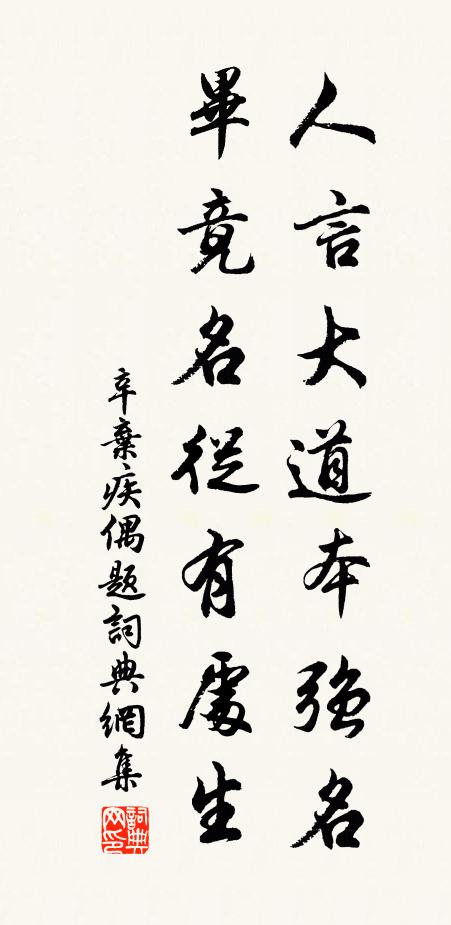 人言大道本強名
畢竟名從有處生
辛棄疾偶題詞典網集
詞典网印